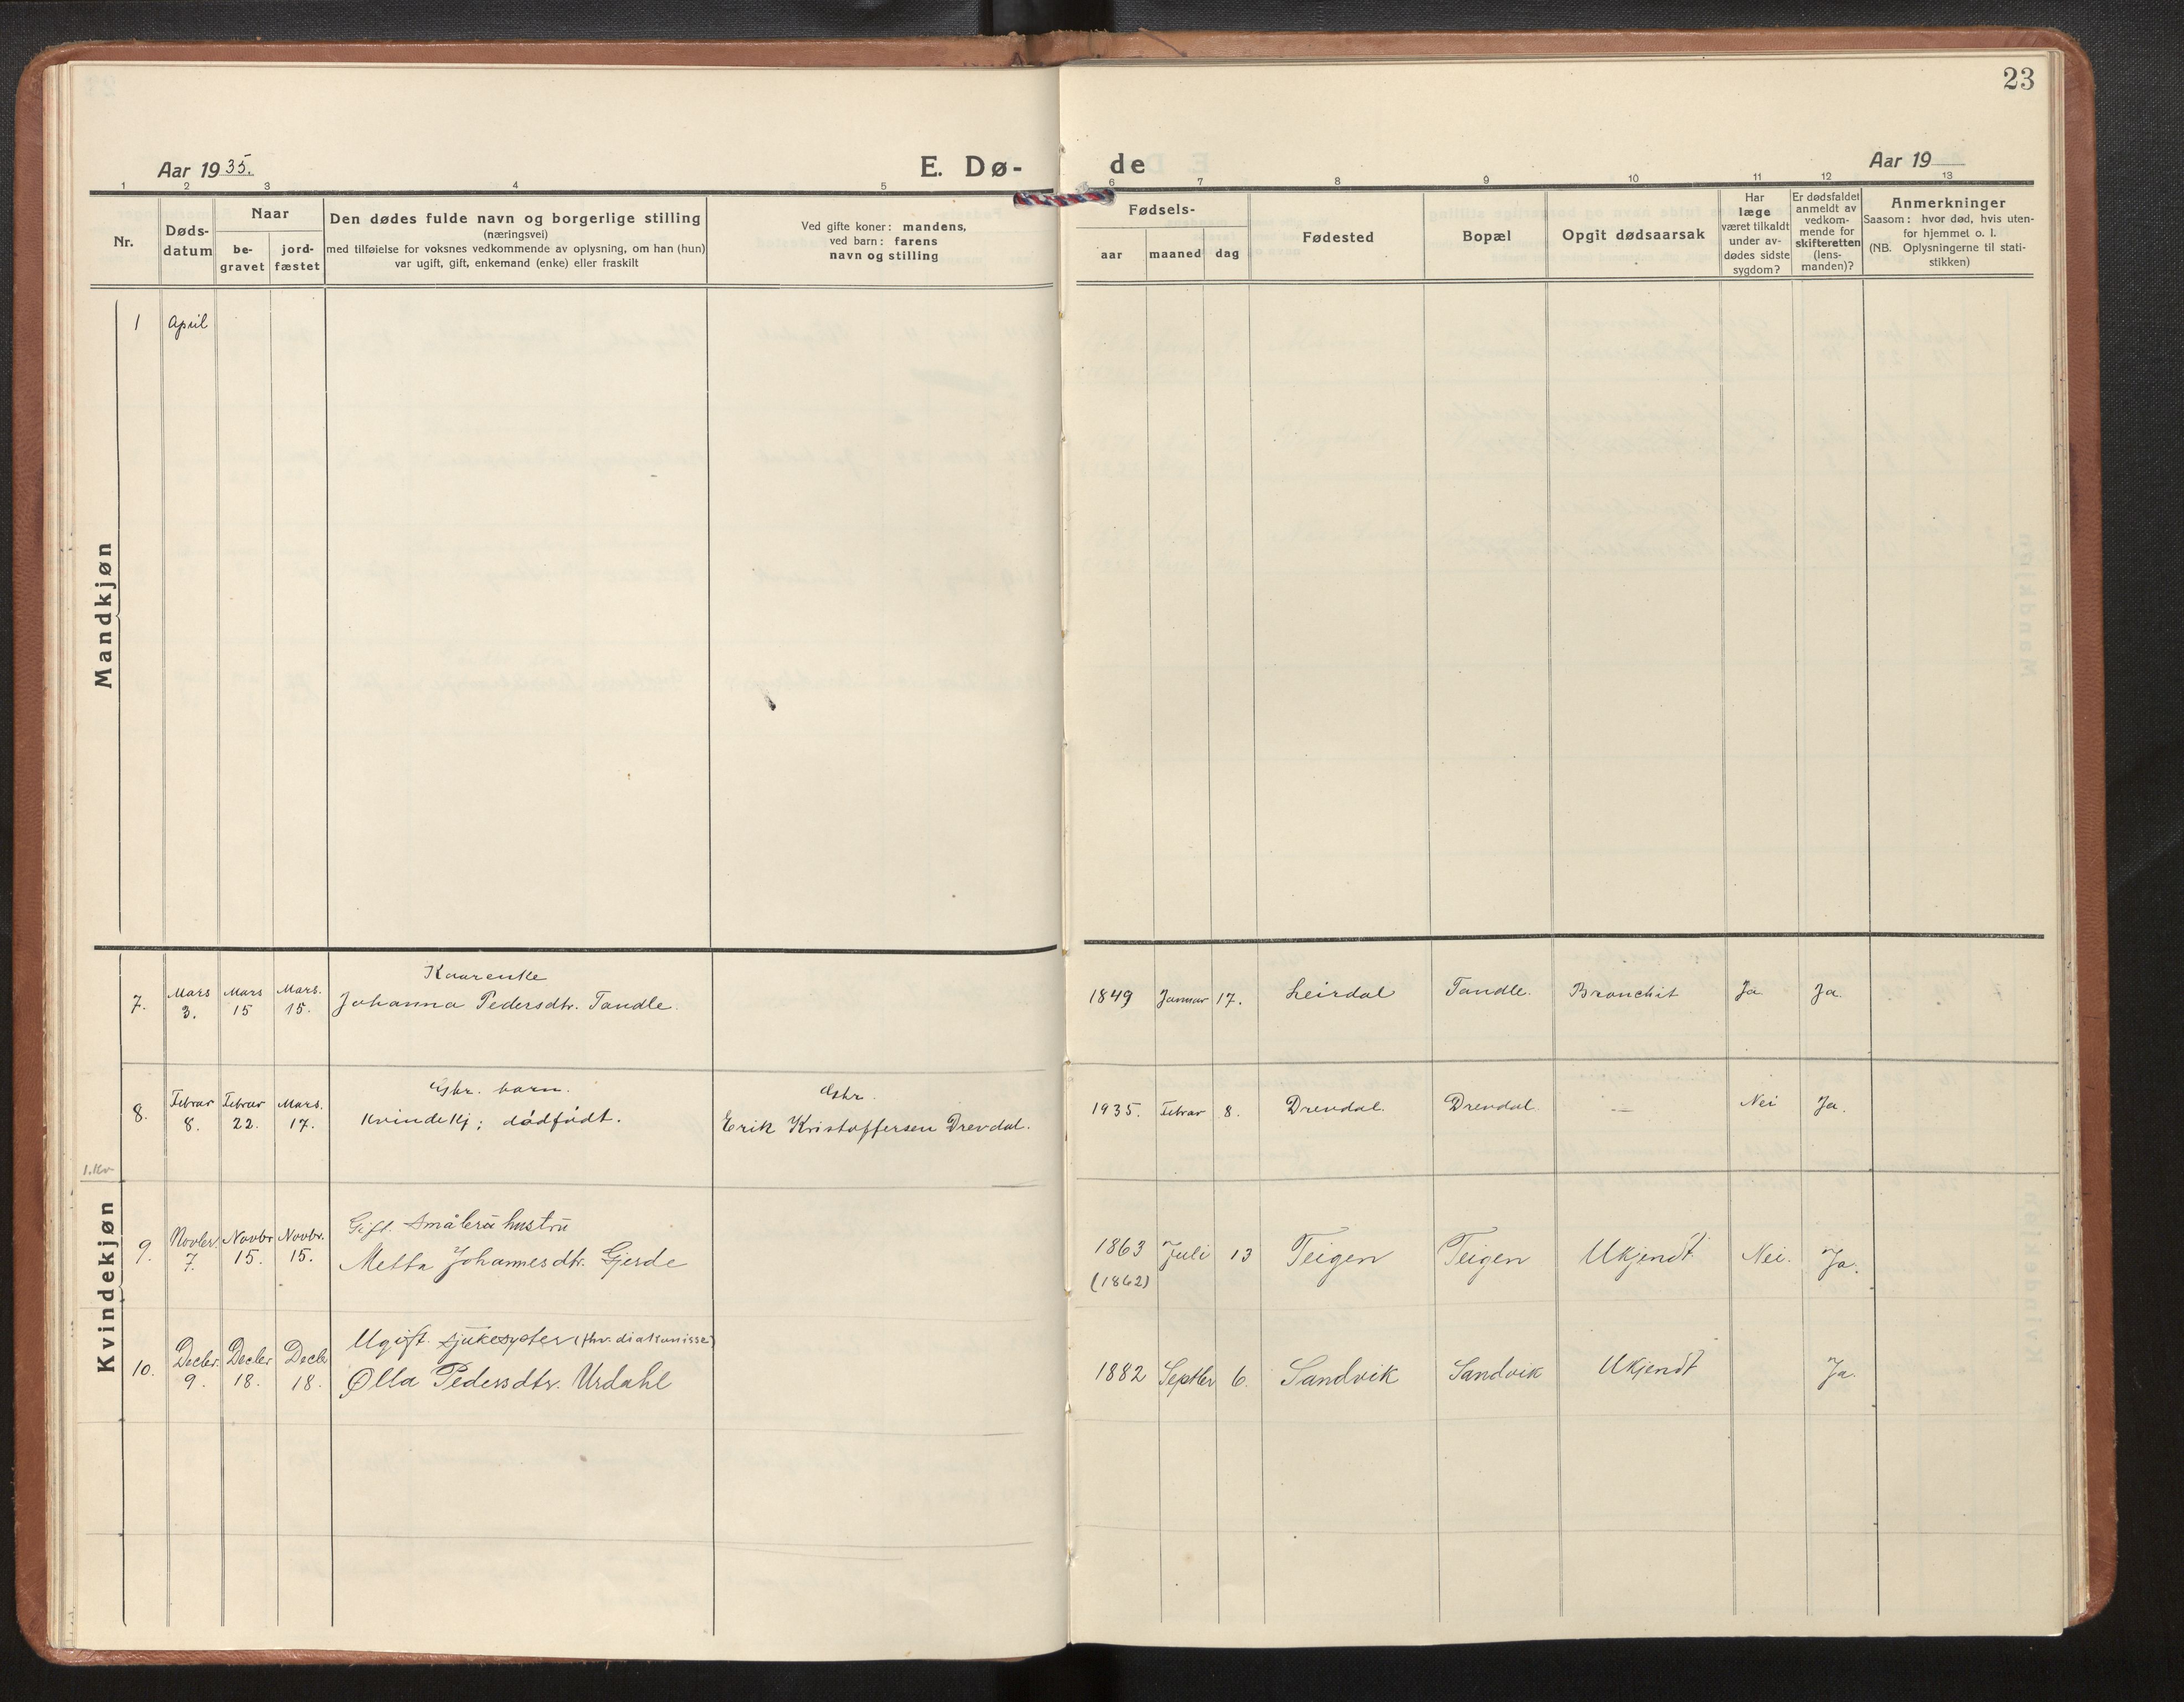 23
Aar 1935.
E. Dø-
de
Aar 19
1 2 3 4 5 6 7 8 9 10 11 12 13
Nr.
Døds-
datum
Naar
be-
gravet
jord-
fæstet
Den dødes fulde navn og borgerlige stilling
(næringsvei)
med tilføielse for voksnes vedkommende av oplysning, om han (hun)
var ugift, gift, enkemand (enke) eller fraskilt
Ved gifte koner: mandens,
ved barn: farens
navn og stilling
Fødsels-
aar
maaned
dag
Fødested
Bopæl
Opgit dødsaarsak
Har
læge
været tilkaldt
under av-
dødes sidste
sygdom?
Er dødsfaldet
anmeldt av
vedkom-
mende for
skifteretten
(lens-
manden)?
Anmerkninger
Saasom: hvor død, hvis uten-
for hjemmet o. l.
(NB. Oplysningerne til stati-
stikken)
Mandkjøn
1 April
Kvindekjøn
Kaarenke
7. Mars 3. Mars 15 Mars. 15. Johanna Pedersdtr. Tandle. 1849 Januar 17. Leirdal Tandle. Bronchit Ja Ja.
Gbr. barn. Gbr.
8. Febrar 8. Febrar 22. Mars. 17. Kvindekj; dødfødt. Erik Kristoffersen Drevdal. 1935. Febrar 8. Drevdal. Drevdal. — Nei Ja.
1. Kv
Gift. småbr. hustru
9. Novbr. 7. Novbr 15. Novbr. 15. Metta Johannesdtr. Gjerde 1863 Juli 13 Teigen Teigen Ukjendt Nei. Ja.
(1862)
Ugift. sjukesyster (fhv. diakonisse)
10. Decbr. 9. Decbr 18. Decbr 18. Olla Pedersdtr. Urdahl 1882 Septbr 6. Sandvik Sandvik Ukjendt Ja.